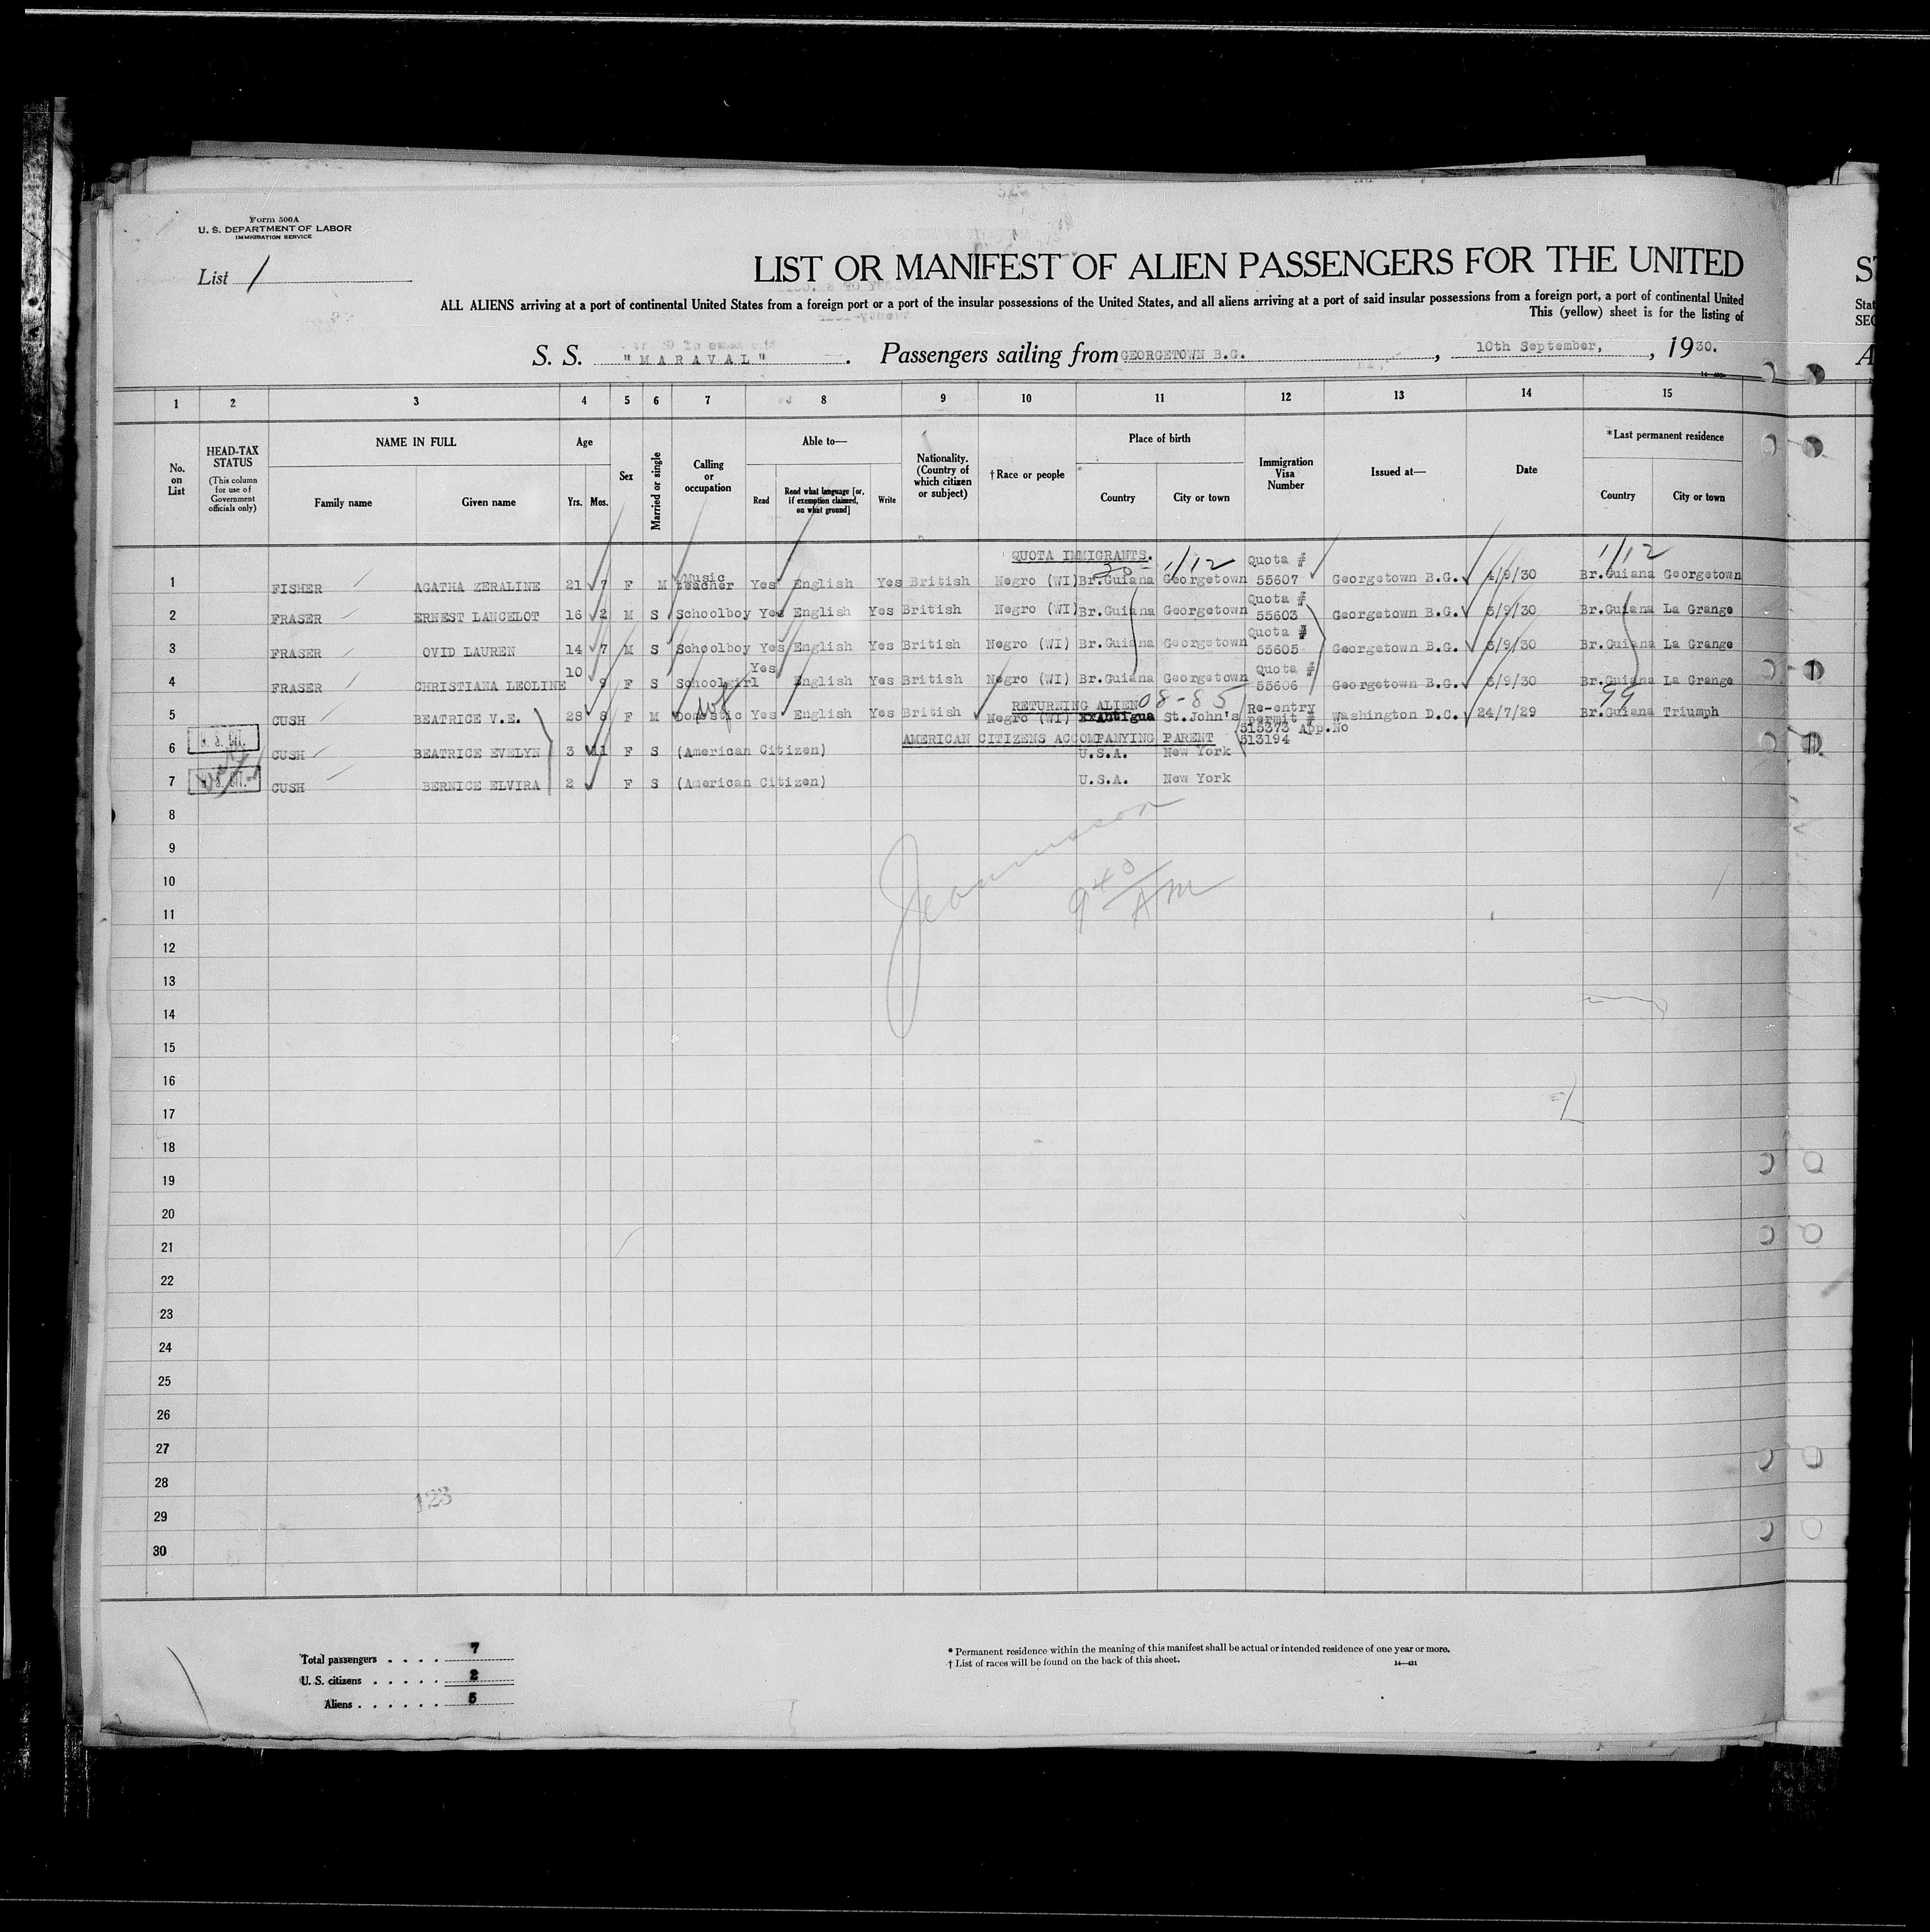 Form 500A
U. S. DEPARTMENT OF LABOR
IMMIGRATION SERVICE
List 1
LIST OR MANIFEST OF ALIEN PASSENGERS FOR THE UNITED
ALL ALIENS arriving at a port of continental United States from a foreign port or a port of the insular possessions of the United States, and all aliens arriving at a port of said insular possessions from a foreign port, a port of continental United
This (yellow) sheet is for the listing of
S. S. "MARAVAL". Passengers sailing from GEORGETOWN B.G., 10th September, 1930.
1 2 3 4 5 6 7 8 9 10 11 12 13 14 15
No. on List
HEAD-TAX STATUS (This column for use of Government officials only)
NAME IN FULL
Family name Given name
Age
Yrs. Mos.
Sex
Married or single
Calling or occupation
Able to—
Read
Read what language [or, if exemption claimed, on what ground]
Write
Nationality. (Country of which citizen or subject)
†Race or people
Place of birth
Country City or town
Immigration Visa Number
Issued at—
Date
*Last permanent residence
Country City or town
QUOTA IMMIGRANTS. 1/12 1/12
1 FISHER AGATHA ZERALINE 21 7 F M Music teacher Yes English Yes British Negro (WI) Br.Guiana Georgetown Quota # 55607 Georgetown B.G. 4/9/30 Br.Guiana Georgetown
2 FRASER ERNEST LANCELOT 16 2 M S Schoolboy Yes English Yes British Negro (WI) Br.Guiana Georgetown Quota # 55603 Georgetown B.G. 3/9/30 Br.Guiana La Grange
3 FRASER OVID LAUREN 14 7 M S Schoolboy Yes English Yes British Negro (WI) Br.Guiana Georgetown Quota # 55605 Georgetown B.G. 3/9/30 Br.Guiana La Grange
4 FRASER CHRISTIANA LEOLINE 10 9 F S Schoolgirl Yes English Yes British Negro (WI) Br.Guiana Georgetown Quota # 55606 Georgetown B.G. 3/9/30 Br.Guiana La Grange
RETURNING ALIEN 08-85 99
5 CUSH BEATRICE V.E. 28 8 F M Domestic Yes English Yes British Negro (WI) xxAntigua St.John's Re-entry permit # 515373 App.No 513194 Washington D.C. 24/7/29 Br.Guiana Triumph
AMERICAN CITIZENS ACCOMPANYING PARENT
6 CUSH BEATRICE EVELYN 3 11 F S (American Citizen) U.S.A. New York
7 CUSH BERNICE ELVIRA 2 F S (American Citizen) U.S.A. New York
8
9
9 40 AM
10
11
12
13
14
15
16
17
18
19
20
21
22
23
24
25
26
27
28
123
29
30
Total passengers 7
U. S. citizens 2
Aliens 5
* Permanent residence within the meaning of this manifest shall be actual or intended residence of one year or more.
† List of races will be found on the back of this sheet.
14—431